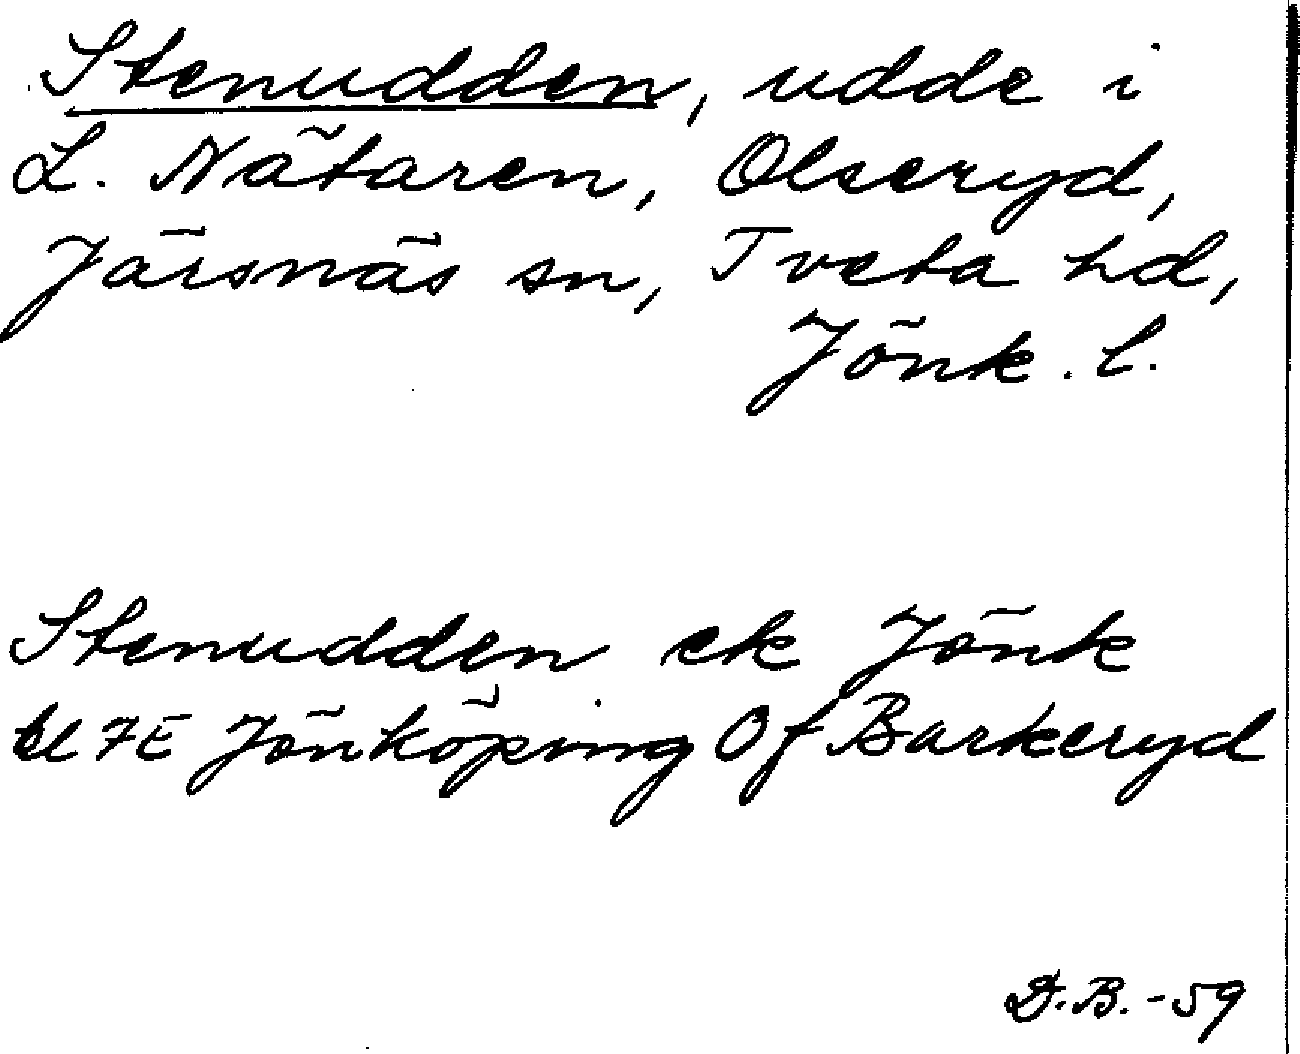 Stenudden, udde i
L. Nätaren, Olseryd,
Järsnäs sn, Tveta hd,
Jönk. l.
Stenudden ek Jönk
bl 7E Jönköping Of Barkeryd
D.B. -59